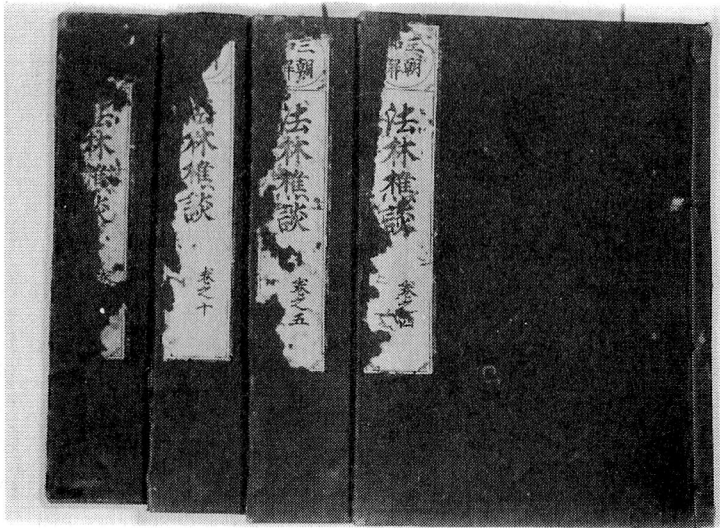 三朝
和解
法林樵談
卷之四
三朝
和解
法林樵談
卷之五
法林樵談
卷之十
法林樵談